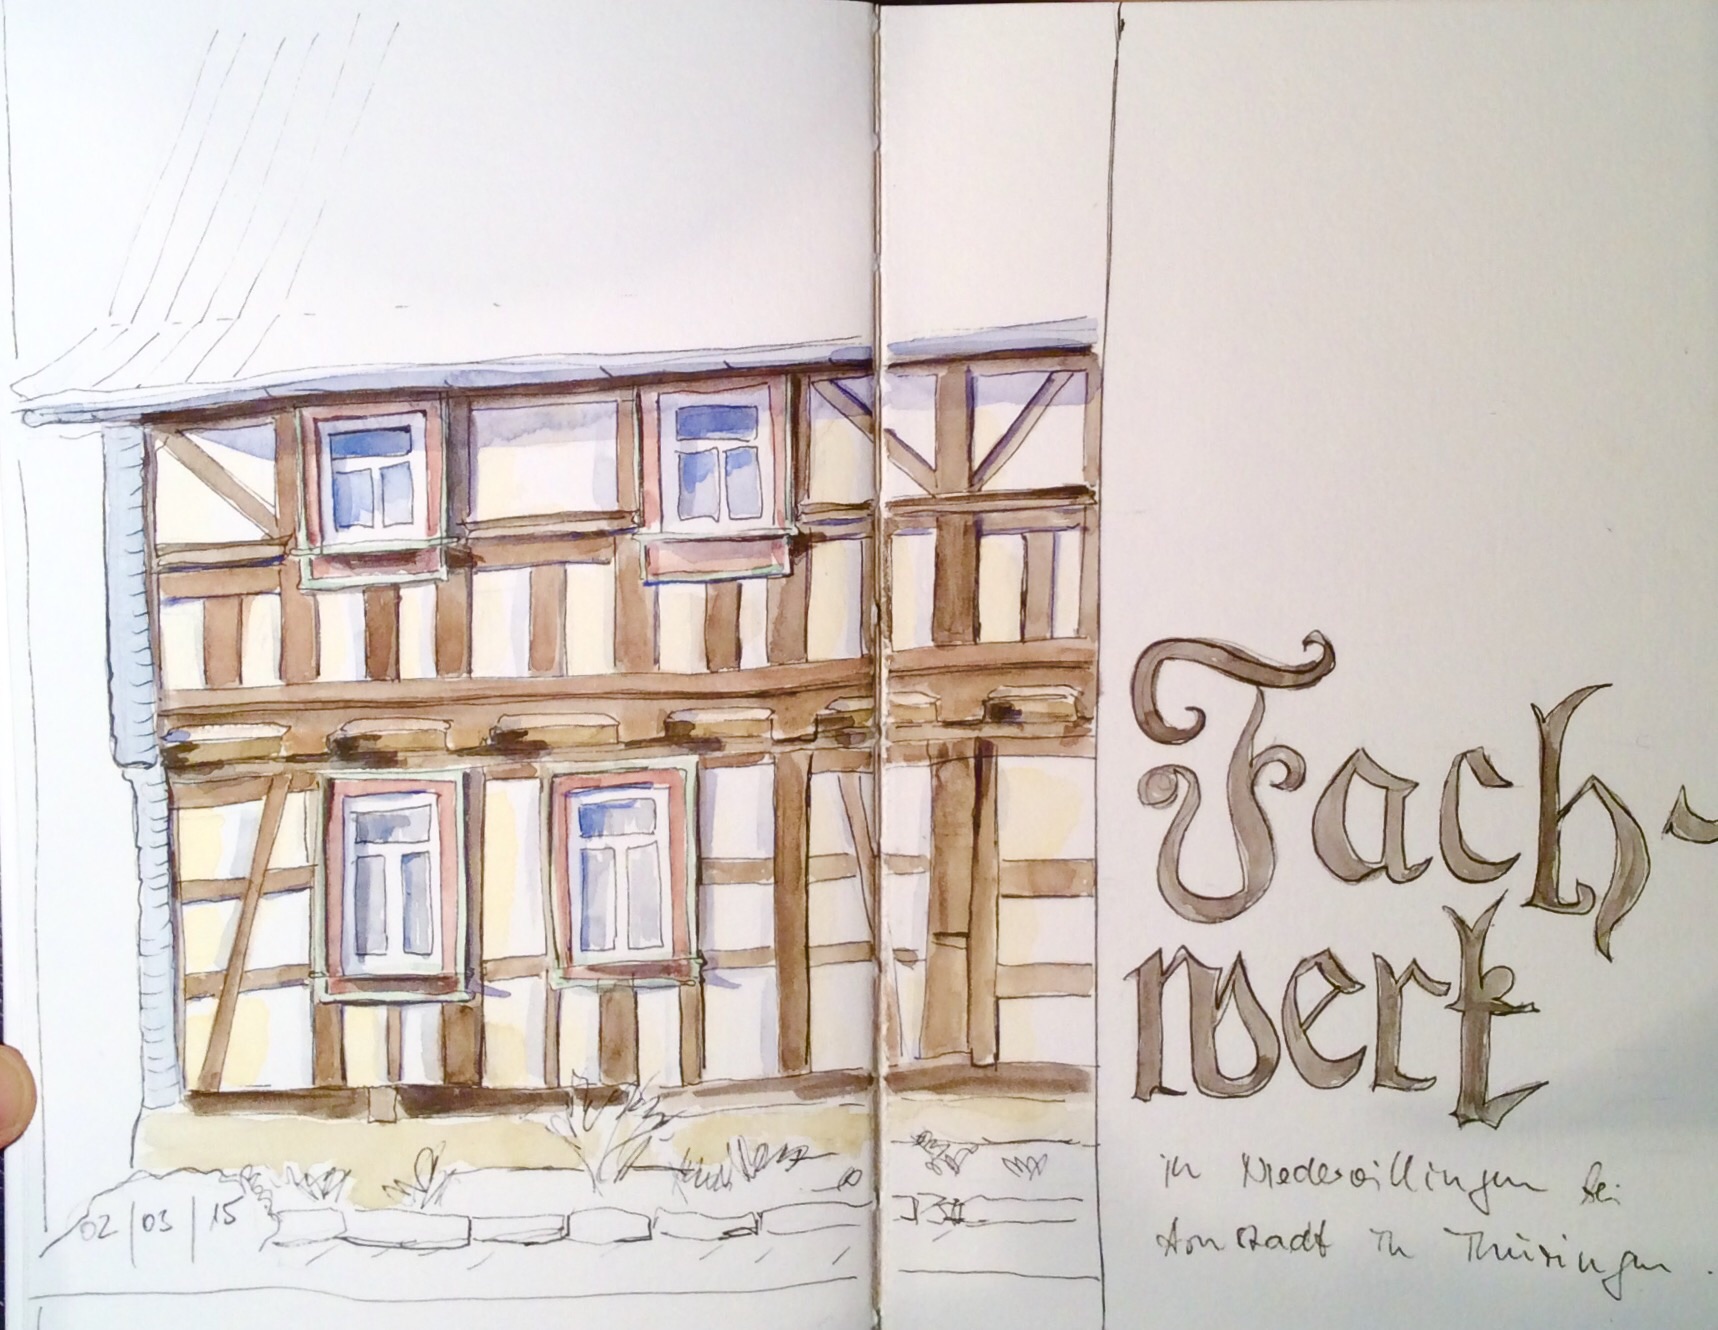 Fach-
werk
in Niederwillingen bei
Arnstadt in Thüringen.
02/03/15